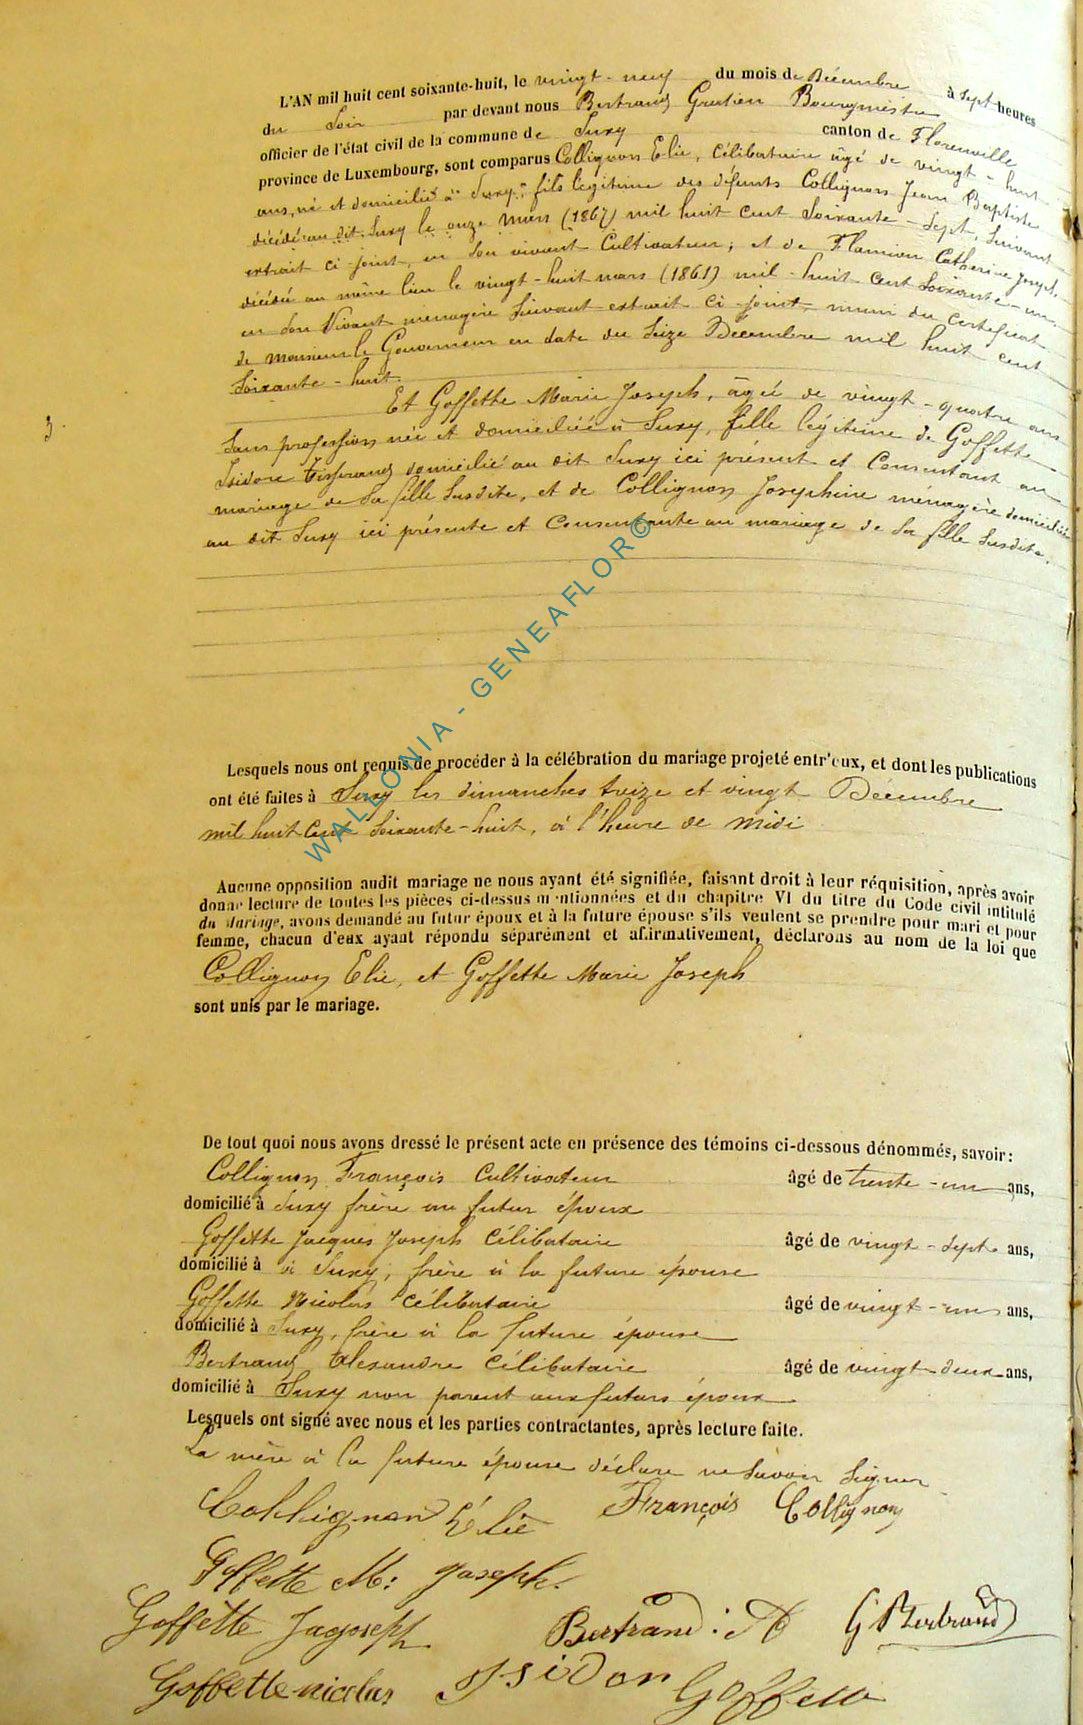 3.
L'AN mil huit cent soixante-huit, le vingt-neuf du mois de Décembre à sept heures
du Soir par devant nous Bertrand Gratien Bourgmestre
officier de l'état civil de la commune de Suxy canton de Florenville
province de Luxembourg, sont comparus Collignon Elie, célibataire âgé de vingt-huit
ans, né et domicilié à Suxy, fils légitime des défunts Collignon Jean Baptiste
décédé au dit Suxy le onze Mars (1867) mil huit cent Soixante-Sept, Suivant
extrait ci-joint, en son vivant Cultivateur; et de Flamion Catherine Joseph.
décédée au même lieu le vingt-huit mars (1861) mil-huit cent Soixante-un,
en Son Vivant menagère Suivant extrait ci-joint, muni du certificat
de monsieur le Gouverneur en date du Seize Décembre mil huit cent
Soixante-huit.
Et Goffette Marie Joseph, âgée de vingt-quatre ans
Sans profession née et domiciliée à Suxy, fille légitime de Goffette
Isidore Tisserand domicilié au dit Suxy ici présent et Consentant au
mariage de Sa fille Susdite, et de Collignon Josephine ménagère domiciliée
au dit Suxy ici présente et Consentante au mariage de Sa fille Susdite.
WALLONIA - GENEAFLOR©
Lesquels nous ont requis de procéder à la célébration du mariage projeté entr'eux, et dont les publications
ont été faites à Suxy les dimanches treize et vingt Décembre
mil huit Cent Soixante-huit, à l'heure de midi
Aucune opposition audit mariage ne nous ayant été signifiée, faisant droit à leur réquisition, après avoir
donné lecture de toutes les pièces ci-dessus mentionnées et du chapitre VI du titre du Code civil intitulé
du Mariage, avons demandé au futur époux et à la future épouse s'ils veulent se prendre pour mari et pour
femme, chacun d'eux ayant répondu séparément et affirmativement, déclarons au nom de la loi que
Collignon Elie, et Goffette Marie Joseph
sont unis par le mariage.
De tout quoi nous avons dressé le présent acte en présence des témoins ci-dessous dénommés, savoir:
Collignon François Cultivateur âgé de trente-un ans,
domicilié à Suxy frère au futur époux
Goffette Jacques Joseph Célibataire âgé de vingt-Sept ans,
domicilié à à Suxy, frère à la future épouse
Goffette Nicolas Célibataire âgé de vingt-un ans,
domicilié à Suxy, frère à la future épouse
Bertrand Alexandre Célibataire âgé de vingt-deux ans,
domicilié à Suxy non parent aux futurs époux
Lesquels ont signé avec nous et les parties contractantes, après lecture faite.
La mère à la future épouse déclare ne Savoir Signer
Collignon Élie François Collignon
Goffette M: Joseph.
Goffette Jaqjoseph Bertrand: A G Bertrand
Goffette nicolas Isidor Goffette